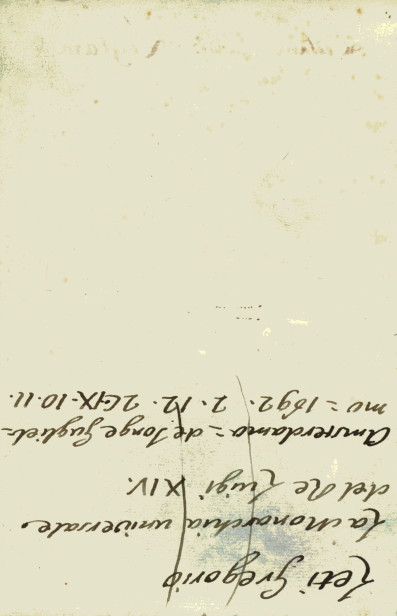 Leti Gregorio
La Monarchia universale
del Re Luigi XIV.
Amsterdamo = de Jonge Gugliel=
mo = 1692. 2. 12.